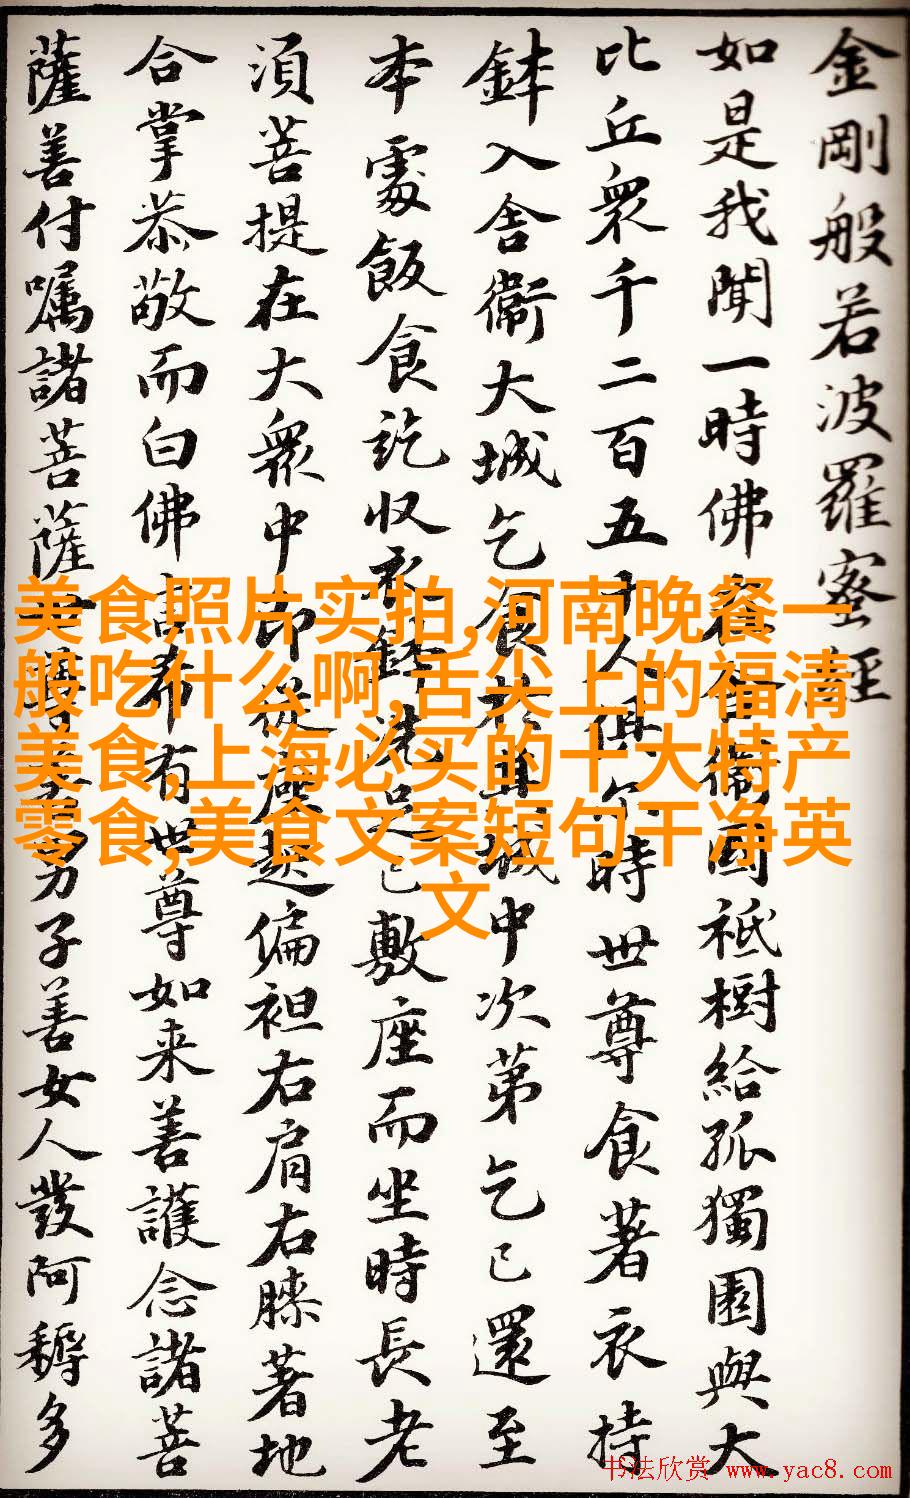 金剛般若波羅蜜經
如是我聞一時佛在舍衛國祇樹給孤獨園與大
比丘衆千二百五十人俱尒時世尊食著衣持
鉢入舍衛大城乞食於其城中次第乞已還至
本處飯食訖収衣鉢洗足已敷座而坐時長老
須菩提在大衆中即從座起偏袒右肩右膝著地
合掌恭敬而白佛言希有世尊如来善護念諸菩
薩善付嘱諸菩薩世尊善男子善女人發阿耨多
美食照片实拍,河南晚餐一
般吃什么啊,舌尖上的福清
美食,上海必买的十大特产
零食,美食文案短句干净英
文
书法欣赏 www.yac8.com